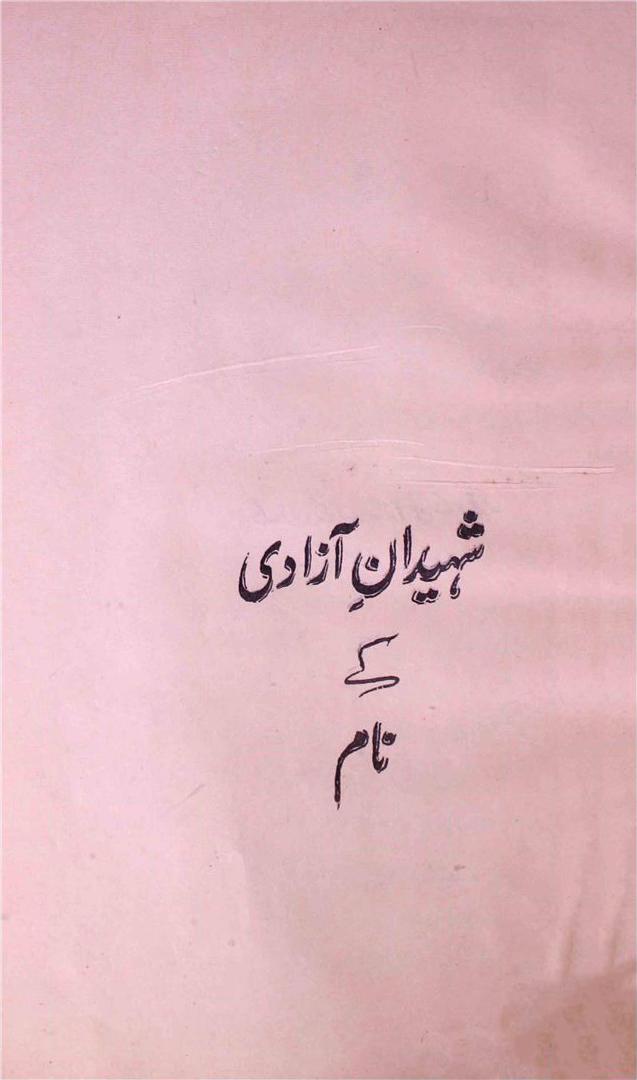 شہیدانِ آزادی
کے
نام